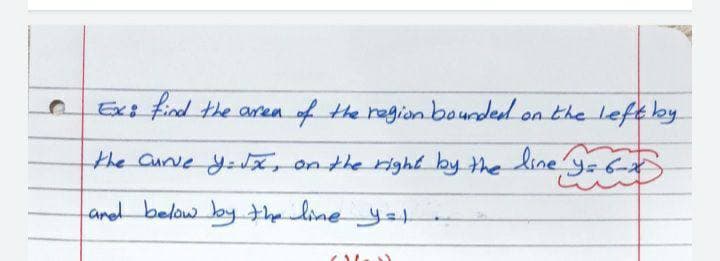 Ex: find the area of the region bounded on the left by
the curve y=√x, on the right by the line y= 6-x
and below by the line y=1 .